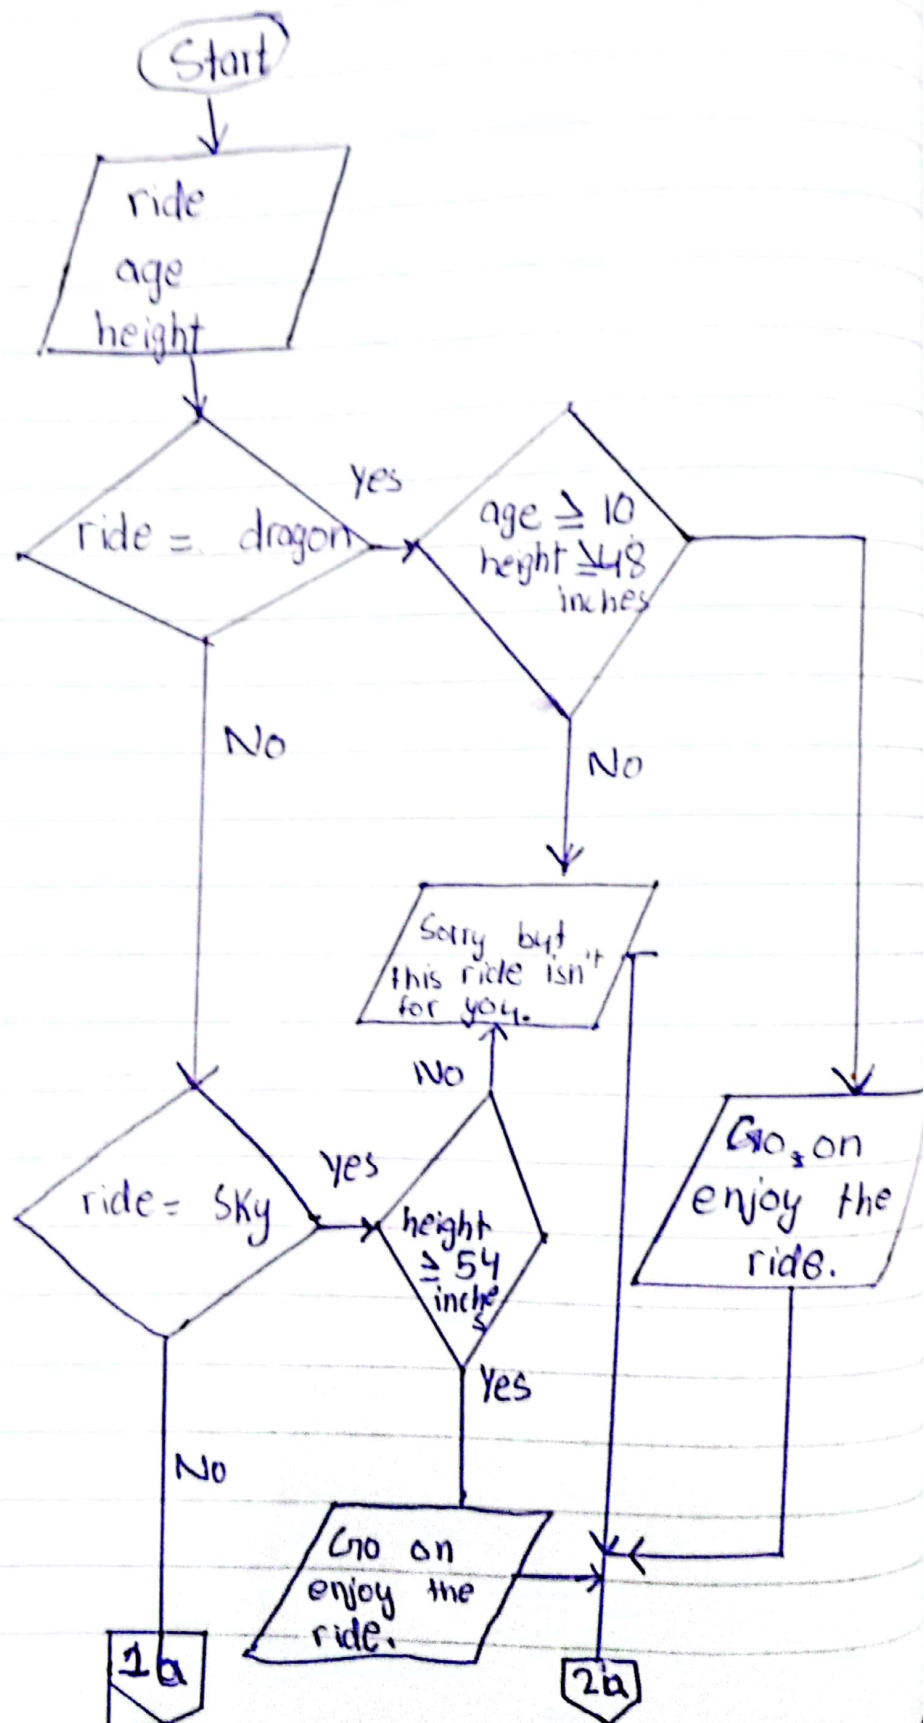 Start
ride
age
height
ride = dragon
Yes
age ≥ 10
height ≥ 48
inches
No
No
Sorry but
this ride isn't
for you.
No
ride = Sky
Yes
height
≥ 54
inche
s
Go on
enjoy the
ride.
Yes
No
Go on
enjoy the
ride.
1a
2a